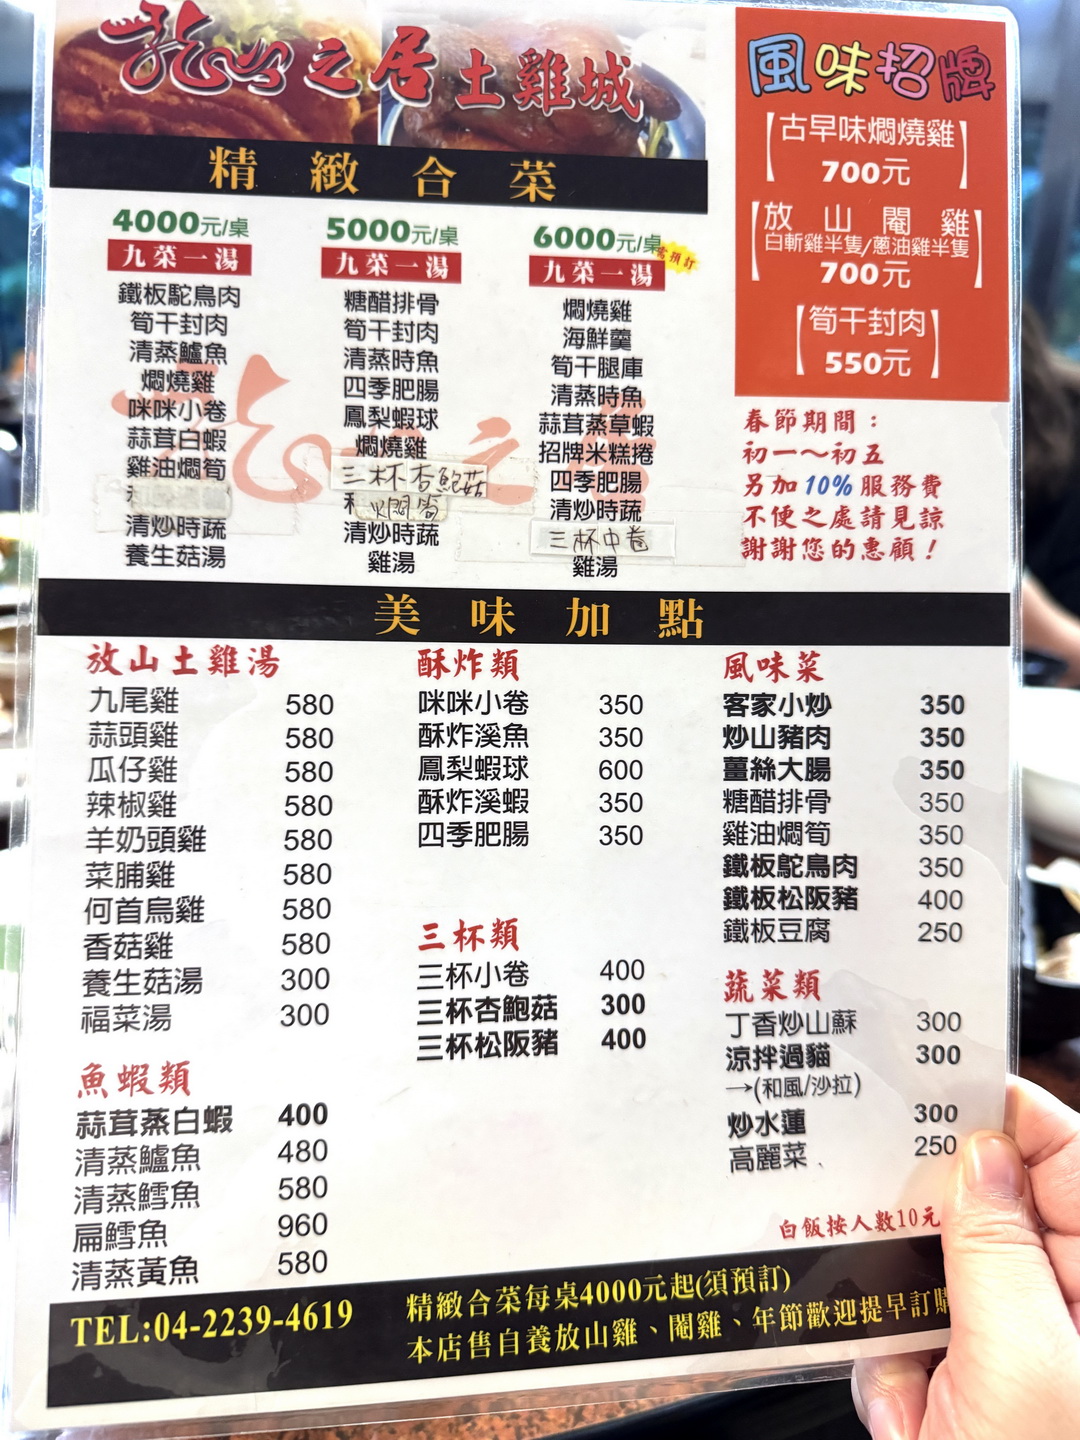 龍山之居土雞城
精緻合菜
4000元/桌
九菜一湯
鐵板駝鳥肉
筍干封肉
清蒸鱸魚
燜燒雞
咪咪小卷
蒜茸白蝦
雞油燜筍
清炒時蔬
養生菇湯
5000元/桌
九菜一湯
糖醋排骨
筍干封肉
清蒸時魚
四季肥腸
鳳梨蝦球
燜燒雞
三杯杏鮑菇
火悶筍
清炒時蔬
雞湯
6000元/桌
需預訂
九菜一湯
燜燒雞
海鮮羹
筍干腿庫
清蒸時魚
蒜茸蒸草蝦
招牌米糕捲
四季肥腸
清炒時蔬
三杯中卷
雞湯
風味招牌
【古早味燜燒雞】
700元
【放山閹雞】
白斬雞半隻/蔥油雞半隻
700元
【筍干封肉】
550元
春節期間：
初一～初五
另加10%服務費
不便之處請見諒
謝謝您的惠顧！
美味加點
放山土雞湯
九尾雞 580
蒜頭雞 580
瓜仔雞 580
辣椒雞 580
羊奶頭雞 580
菜脯雞 580
何首烏雞 580
香菇雞 580
養生菇湯 300
福菜湯 300
魚蝦類
蒜茸蒸白蝦 400
清蒸鱸魚 480
清蒸鱈魚 580
扁鱈魚 960
清蒸黃魚 580
酥炸類
咪咪小卷 350
酥炸溪魚 350
鳳梨蝦球 600
酥炸溪蝦 350
四季肥腸 350
三杯類
三杯小卷 400
三杯杏鮑菇 300
三杯松阪豬 400
風味菜
客家小炒 350
炒山豬肉 350
薑絲大腸 350
糖醋排骨 350
雞油燜筍 350
鐵板鴕鳥肉 350
鐵板松阪豬 400
鐵板豆腐 250
蔬菜類
丁香炒山蘇 300
涼拌過貓 300
→(和風/沙拉)
炒水蓮 300
高麗菜 250
白飯按人數10元
TEL:04-2239-4619
精緻合菜每桌4000元起(須預訂)
本店售自養放山雞、閹雞、年節歡迎提早訂購